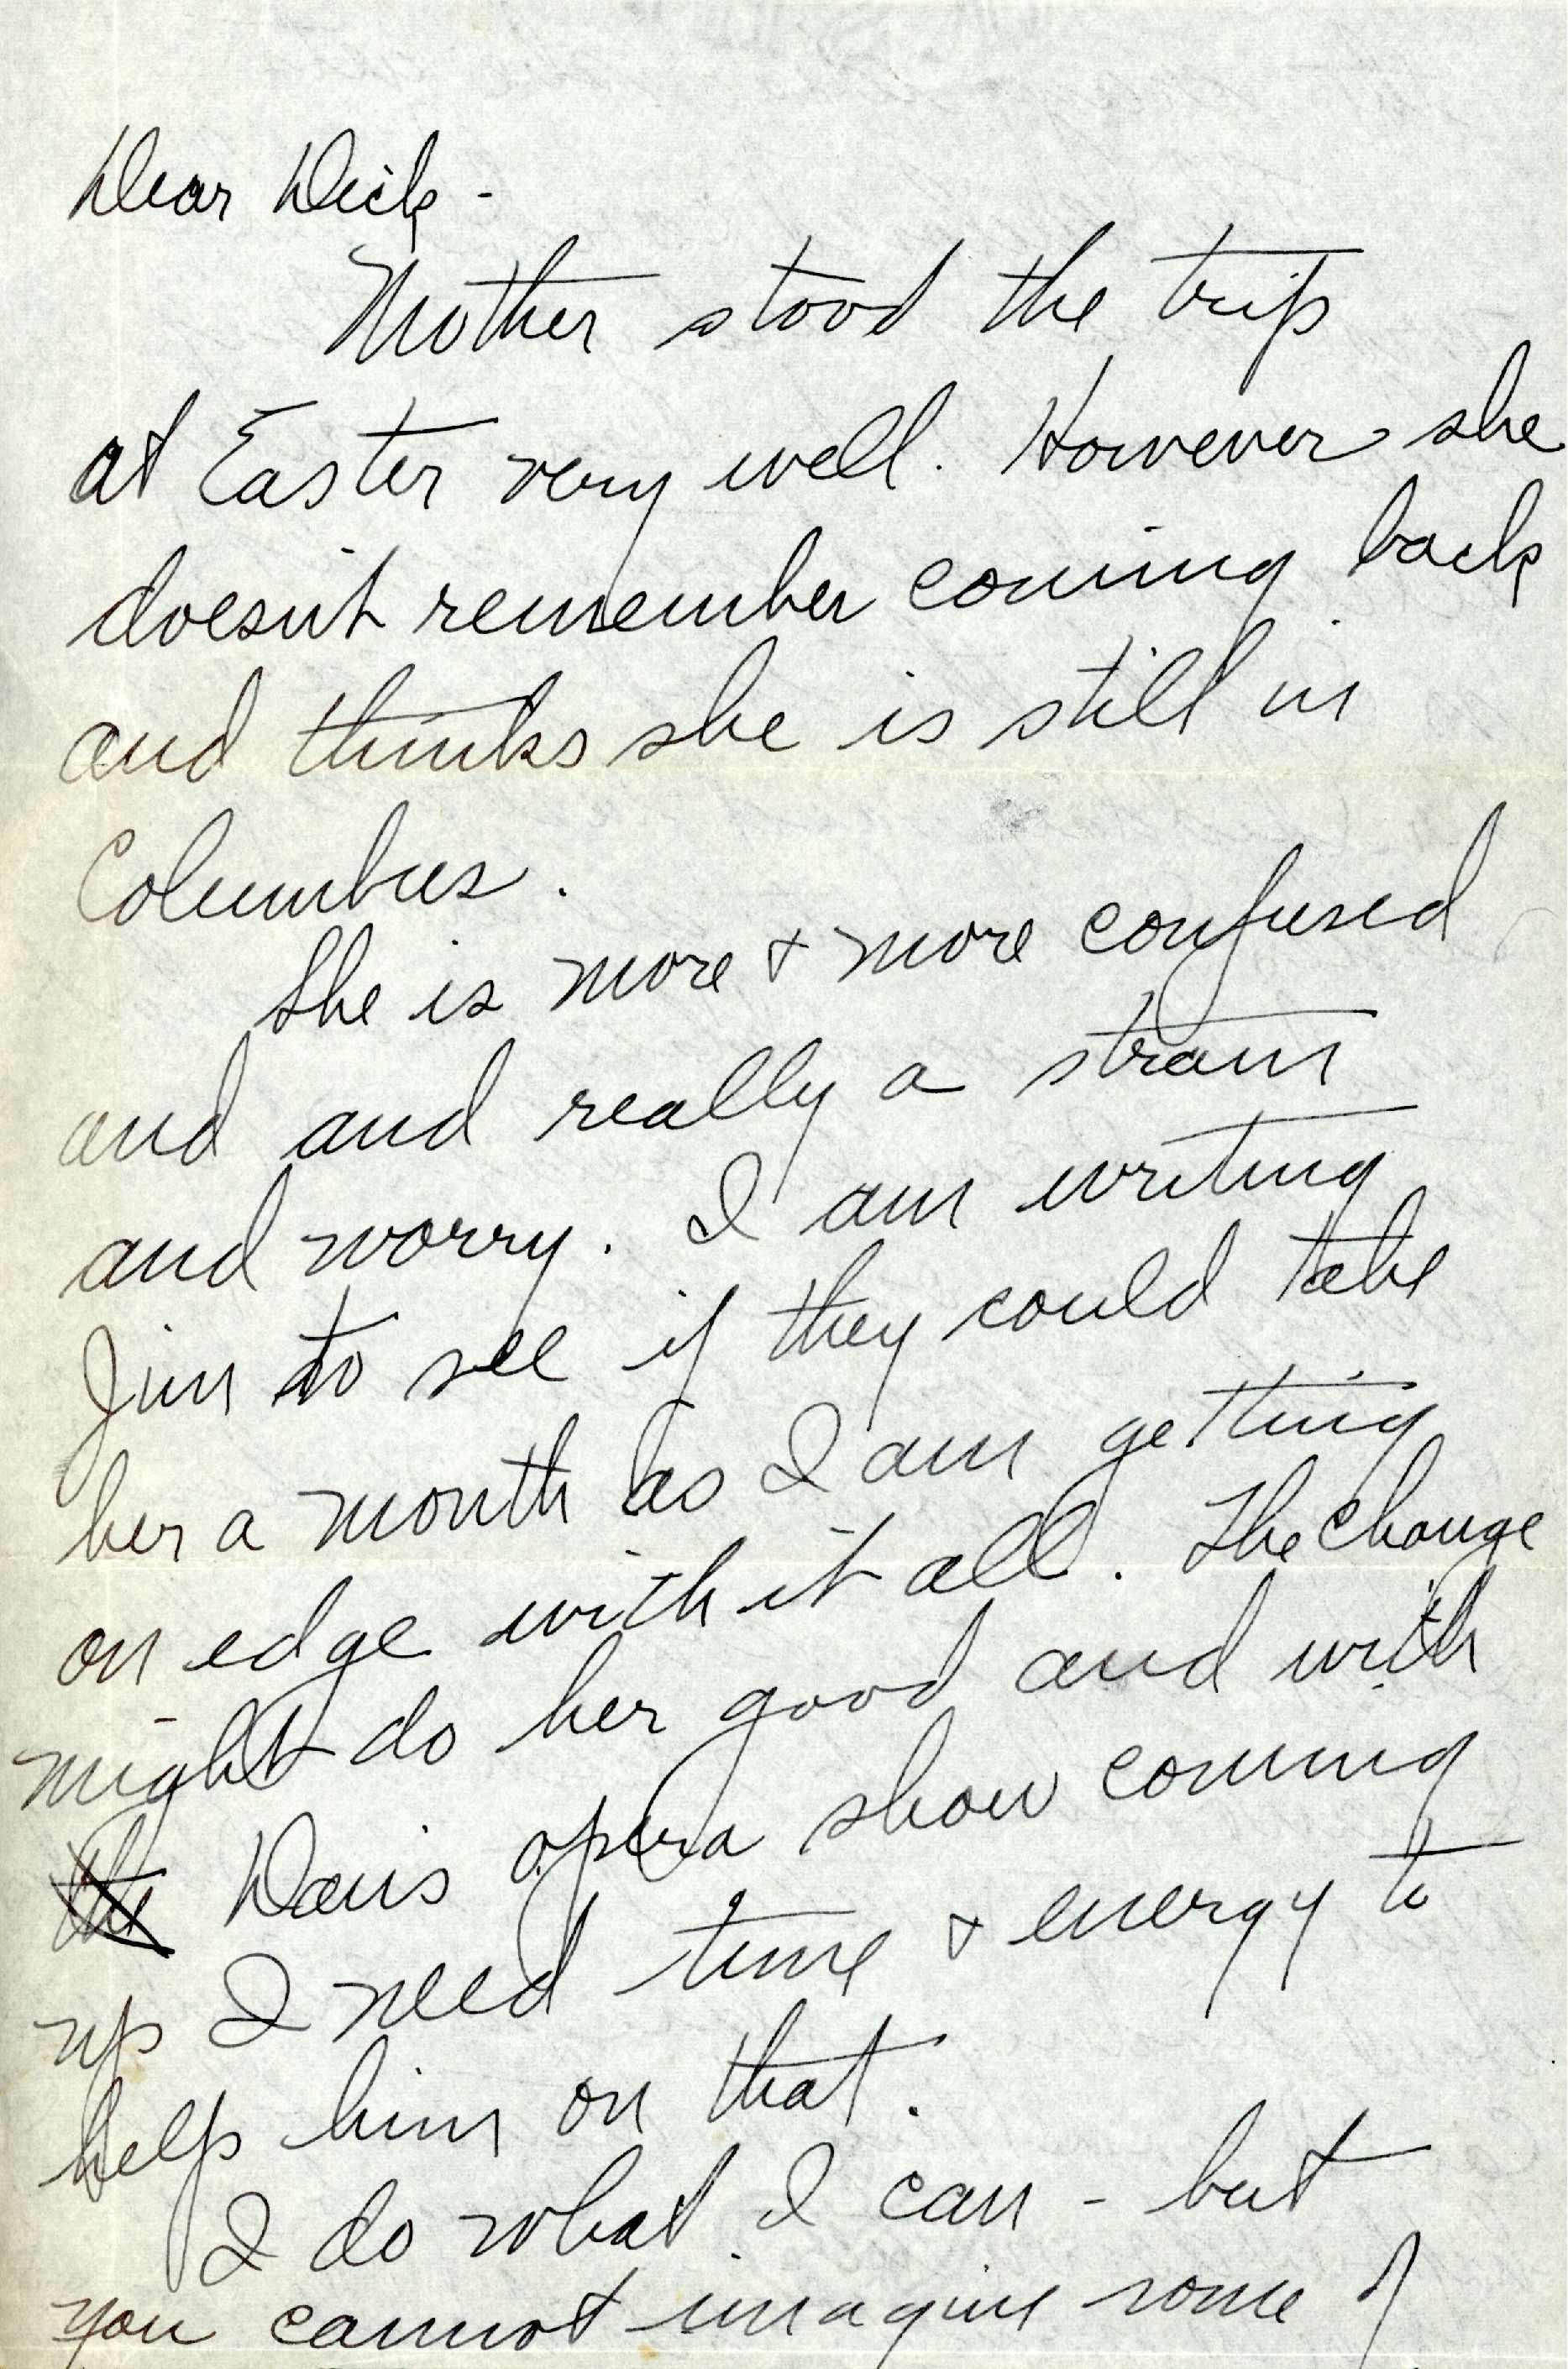 Dear Dick -
Mother stood the trip
at Easter very well. However she
doesn't remember coming back
and thinks she is still in
Columbus.
She is more & more confused
and and really a strain
and worry. I am writing
Jim to see if they could take
her a month as I am getting
on edge with it all. The change
might do her good and with
the Davis opera show coming
up I need time & energy to
help him on that.
I do what I can - but
you cannot imagine some of